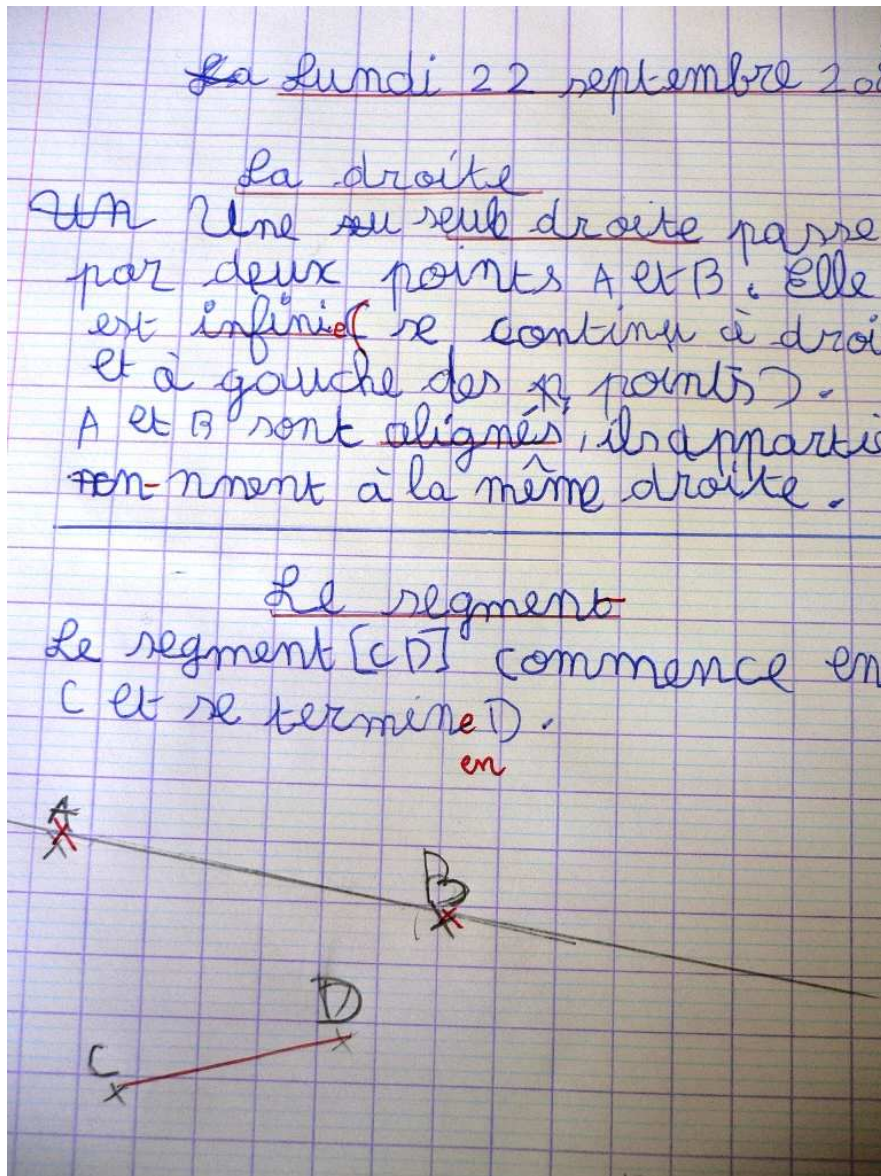 Lundi 22 septembre 20
La droite
Un Une su seule droite passe
par deux points A et B. Elle
est infinie( se continu à droi
et à gauche des points).
A et B sont alignés, ils appartie
nnent à la même droite.
Le segment
Le segment [CD] commence en
C et se termine D.
en
A
B
D
C